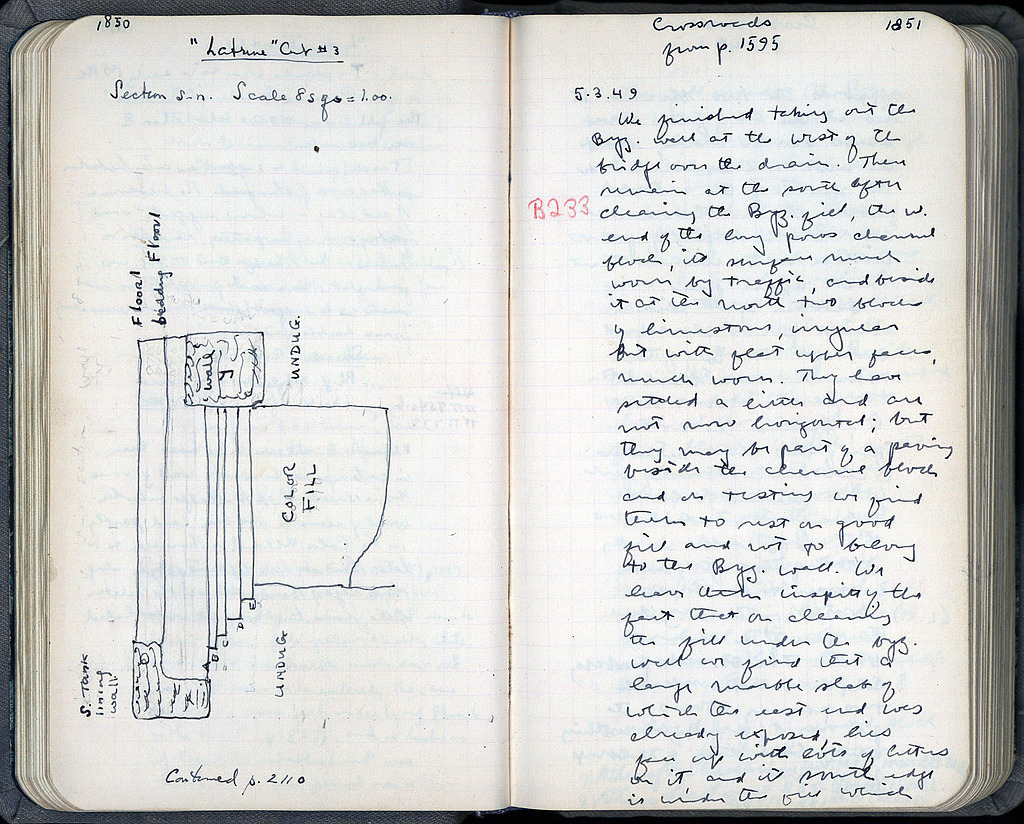 1850
"Latrine" Cut #3
Section S-n. Scale 8 sqs = 1.00.
Floor 1
bedding Floor 1
wall
y
UNDUG.
COLOR
FILL
UNDUG
A
B
C
D
E
S. Tank
lining
wall
Continued p. 2110
Crossroads
1851
from p. 1595
5.3.49
We finished taking out the
Byz. wall at the west of the
bridge over the drain. There
remain at the south after
B233
clearing the Byz. fill, the w.
end of the long poros channel
block, its surface much
worn by traffic, and beside
it at the north two blocks
of limestone, irregular
but with flat upper faces,
much worn. They have
settled a little and are
not now horizontal; but
they may be part of a paving
beside the channel block
and on testing we find
them to rest on good
fill and not to belong
to the Byz. wall. We
leave them inspite of the
fact that on cleaning
the fill under the Byz.
wall we find that a
large marble slab of
which the east end was
already exposed, lies
face up with lots of letters
on it and its south edge
is under the fill which